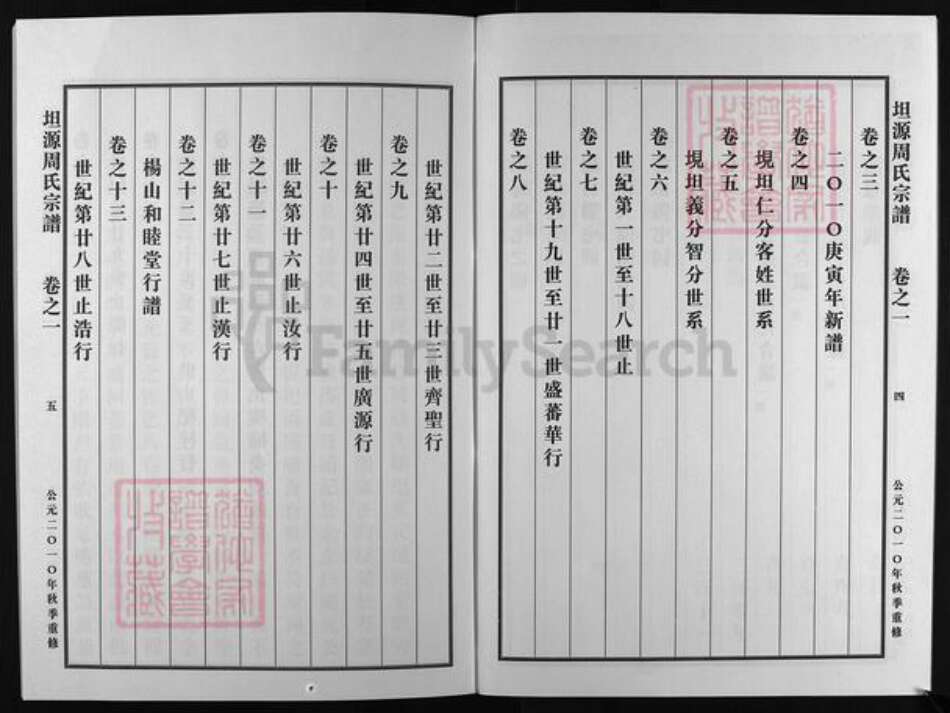 坦源周氏宗譜 卷之一 四 公元二〇一〇年秋季重修
卷之三
二〇一〇庚寅年新譜
卷之四
現坦仁分客姓世系
卷之五
現坦義分智分世系
卷之六
世紀第一世至十八世止
卷之七
世紀第十九世至廿一世盛蕃華行
卷之八
世紀第廿二世至廿三世齊聖行
卷之九
世紀第廿四世至廿五世廣源行
卷之十
世紀第廿六世止汝行
卷之十一
世紀第廿七世止漢行
卷之十二
楊山和睦堂行譜
卷之十三
世紀第廿八世止浩行
坦源周氏宗譜 卷之一 五 公元二〇一〇年秋季重修
FamilySearch